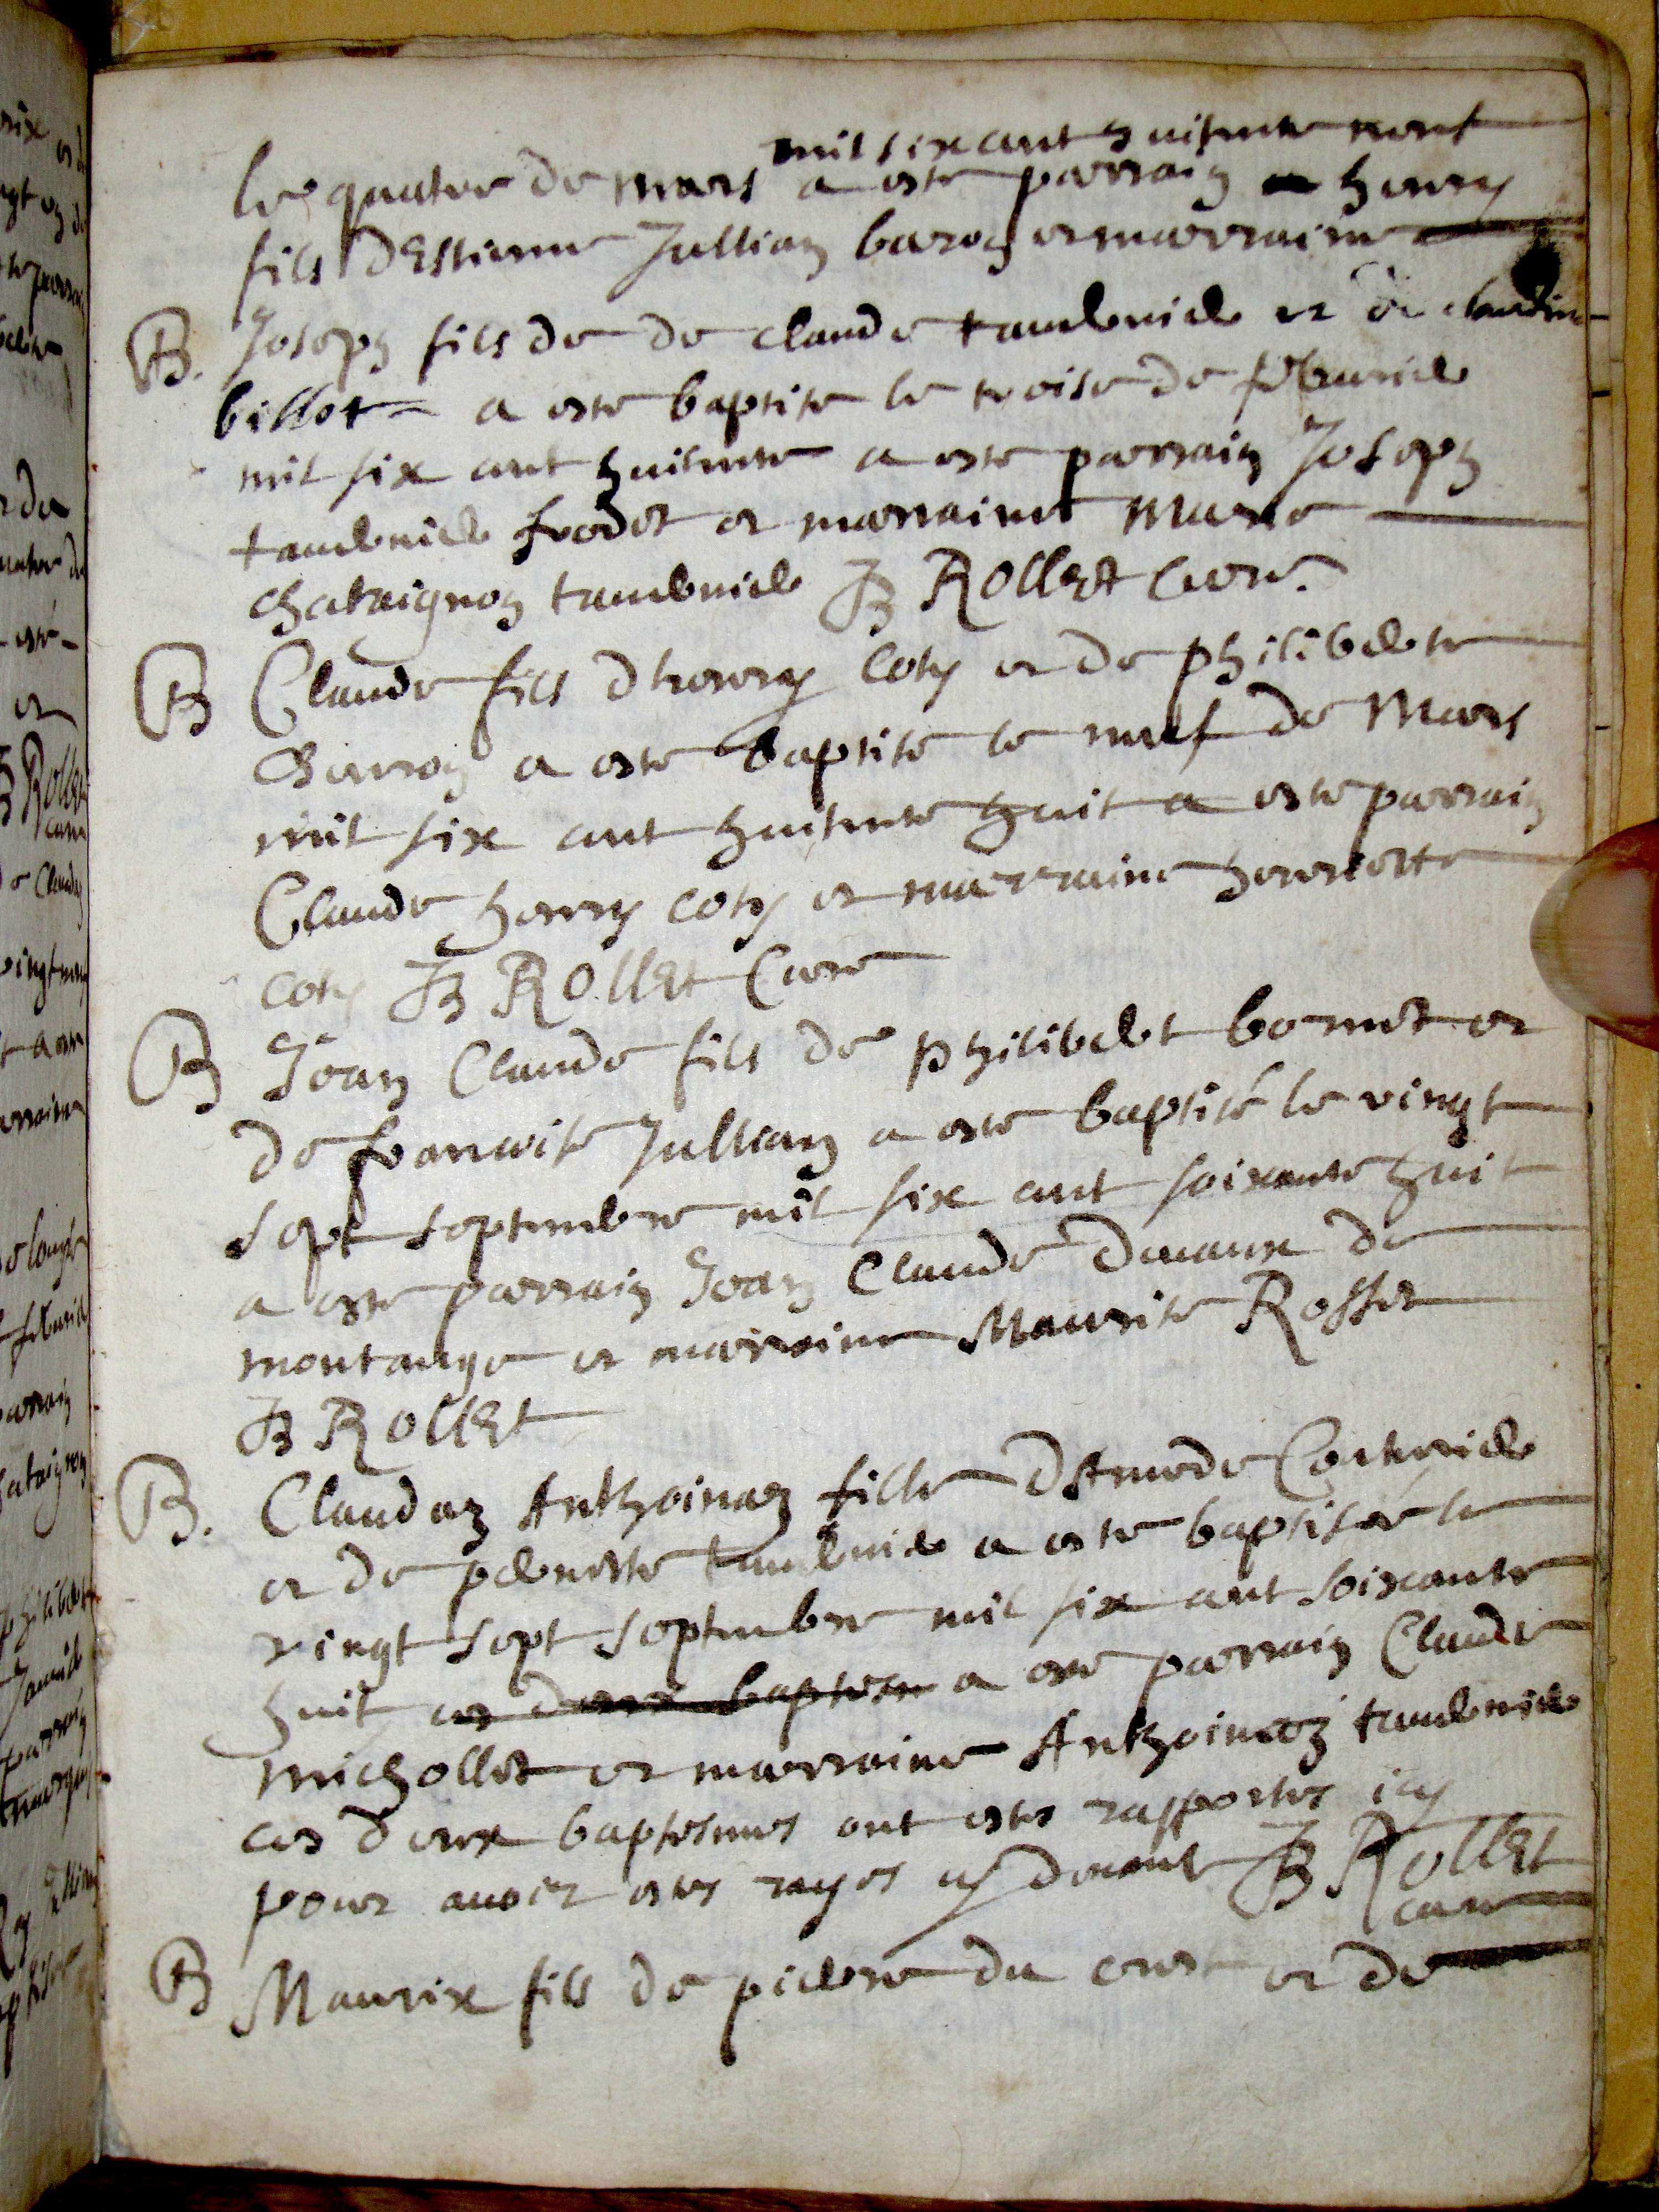 mil six cent huitente neuf
le quatre de mars a este parraig henry
fils d'Estienne Jullian baroz et marraine
B. Joseph fils de de claude tavernier et de claudine
billot a este baptise le troise de febvrier
mil six cent huitente a este parraig Joseph
tavernier frodet et marraine Marie
Chataignoz tavernier JB ROLLET Cure.
B Claude fils d henry Coty et de philiberte
Barroz a este baptise le neuf de Mars
mil six cent huitente huit a este parraig
Claude henry coty et marraine henriette
coty JB ROLLEt Cure
B Jean Claude fils de philibert bornet et
de francoise Jullian a este baptisé le vingt
sept septembre mil six cent soixante huit
a este parraig Jean Claude Devaux de
montange et marraine Maurise Rosset
JB ROLLEt
B. Claudaz Anthoinaz fille d Amede
et de pernette tavernier a este baptisée le
vingt sept septembre mil six cent soixante
huit ces deux baptesme a este parraig Claude
michollet et marraine Anthoinaz tavernier
ces deux baptesmes ont estes rapportes icy
pour avoir estes rayes cy devant JB ROLLEt
cure
B Maurix fils de pierre du crest et de